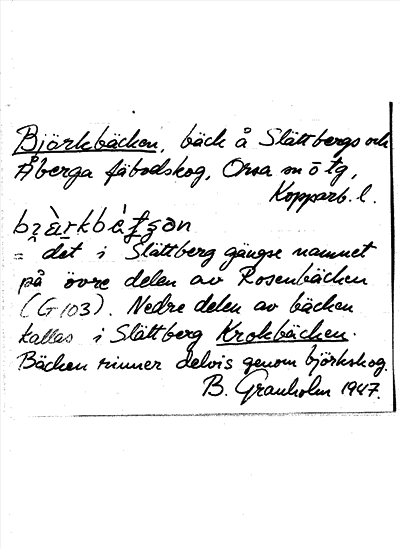 Björkbäcken, bäck å Slättbergs och
Åberga fäbodskog, Orsa sn ö tg,
Kopparb. l.
= det i Slättberg gängse namnet
på övre delen av Rosenbäcken
(G 103). Nedre delen av bäcken
kallas i Slättberg Krokbäcken.
Bäcken rinner delvis genom björkskog.
B. Granholm 1947.